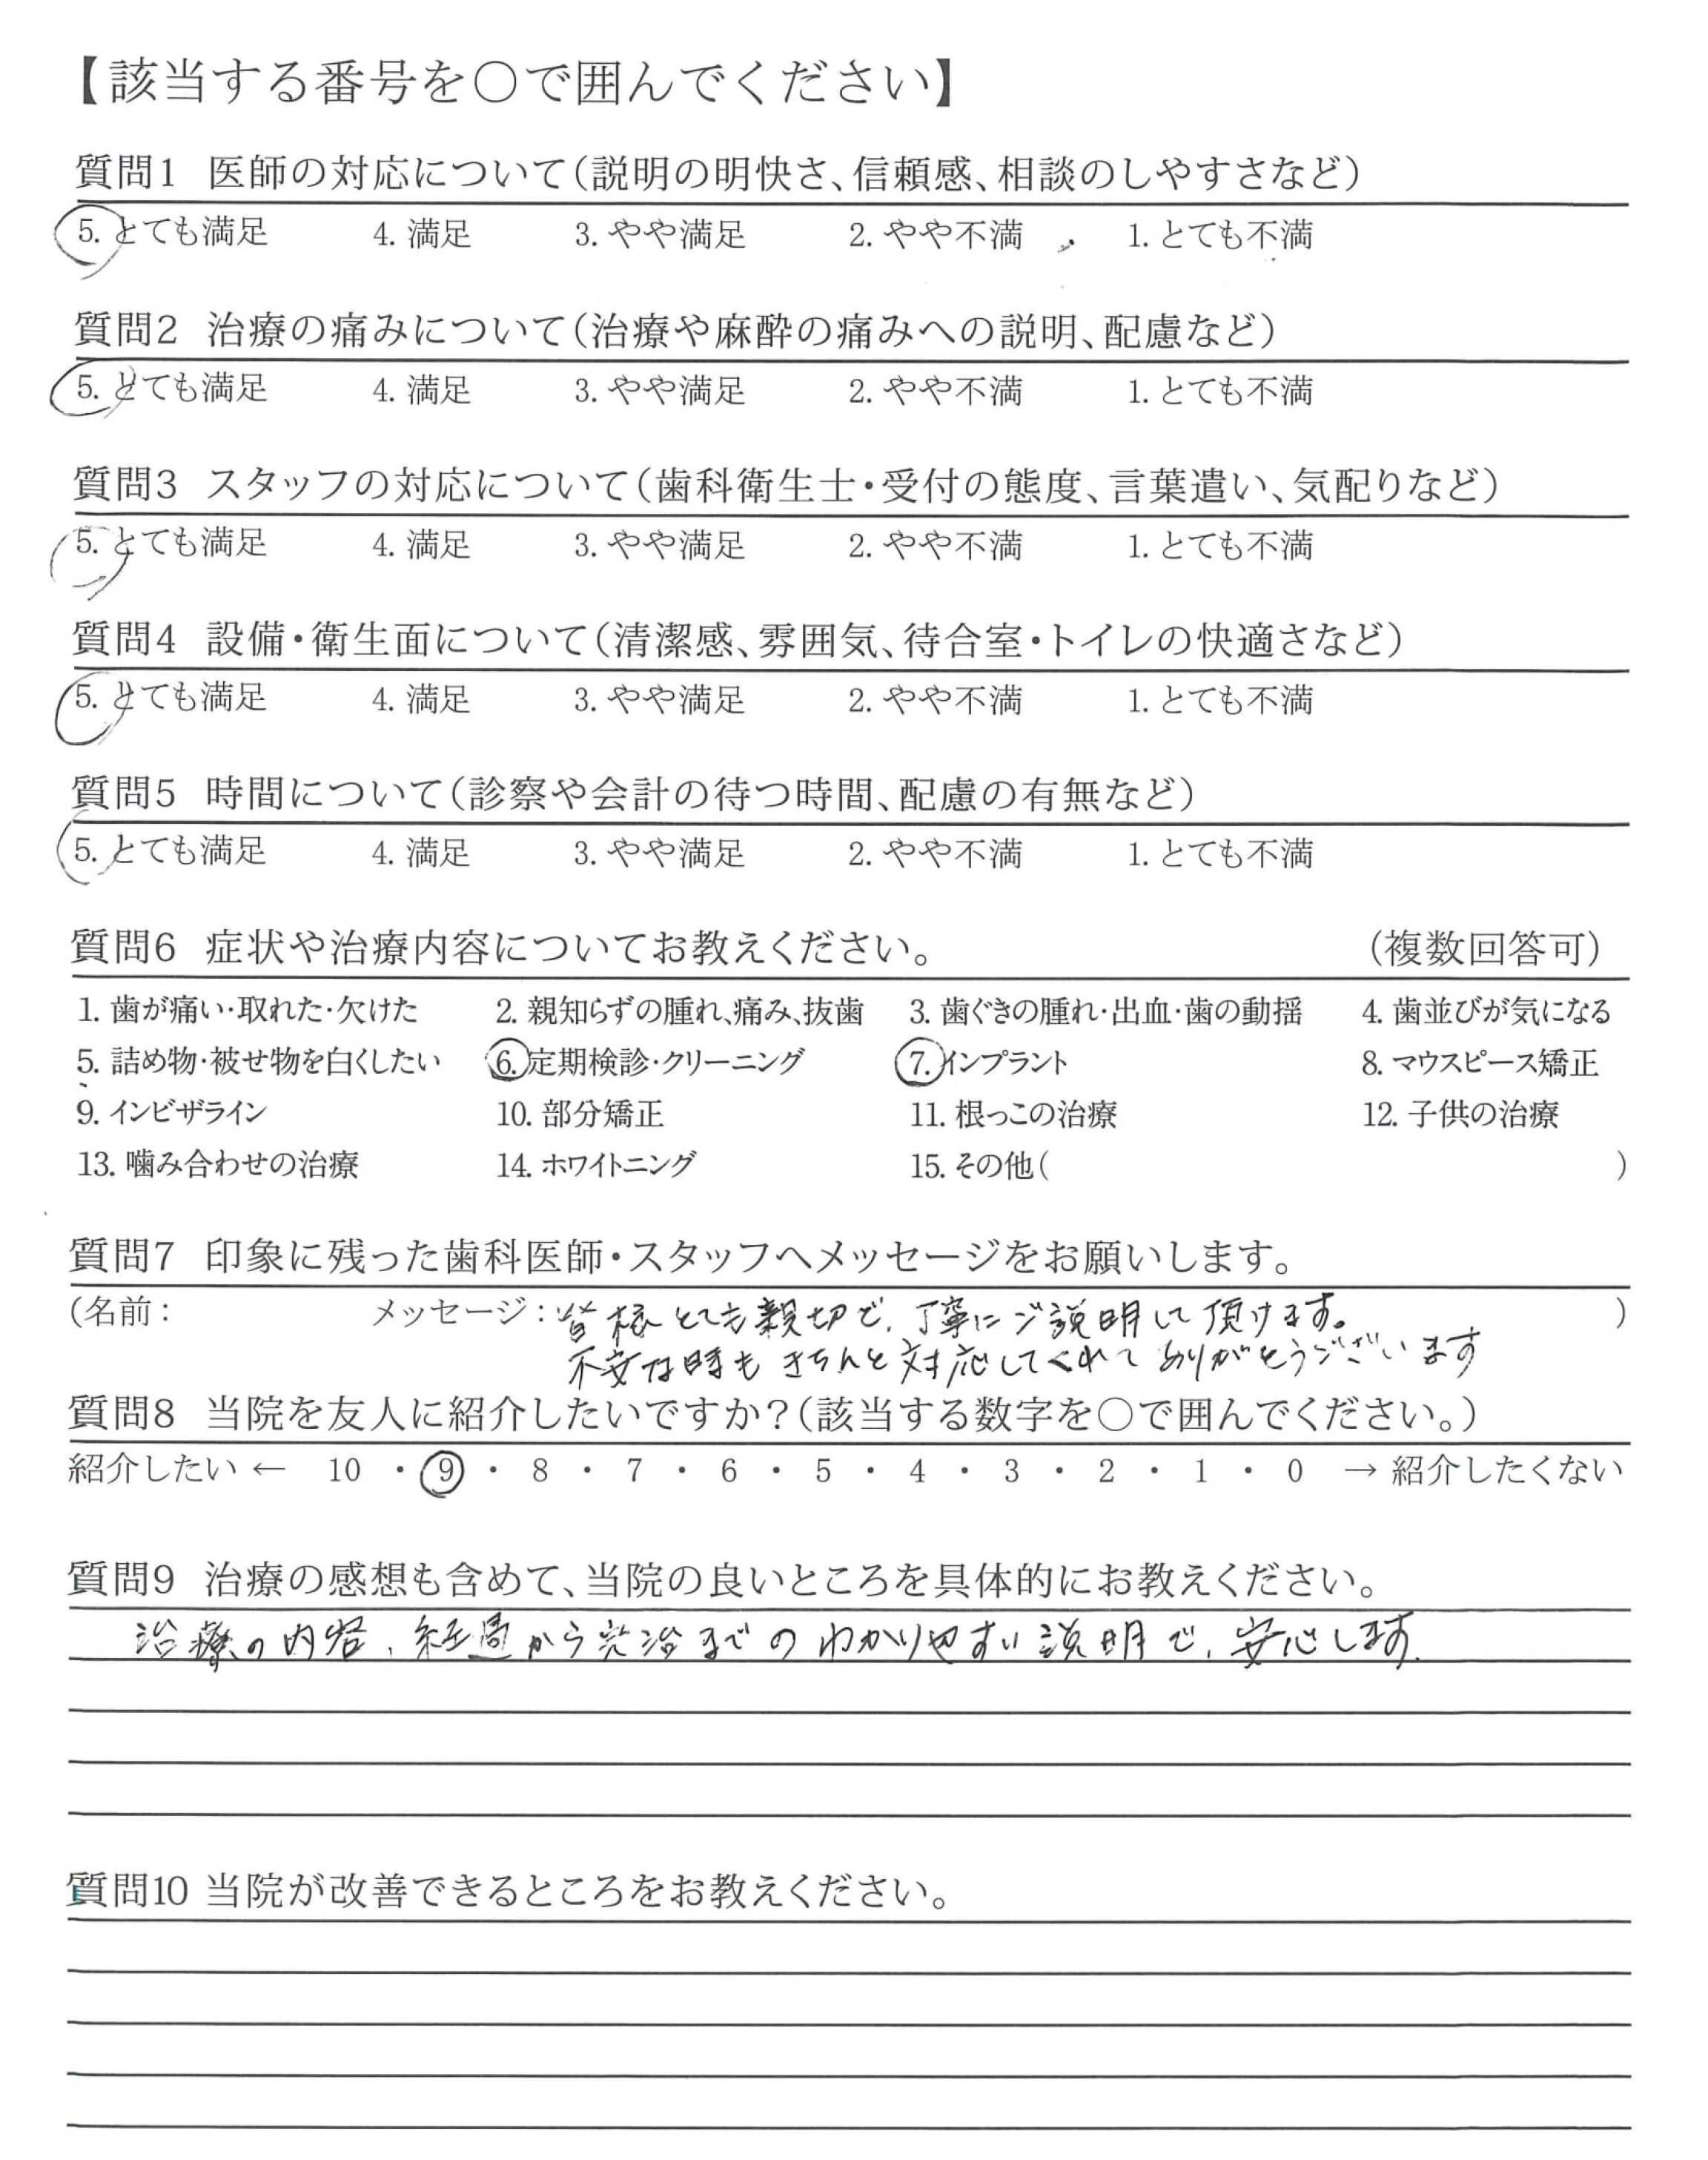 【該当する番号を○で囲んでください】
質問1 医師の対応について(説明の明快さ、信頼感、相談のしやすさなど)
5. とても満足 4. 満足 3. やや満足 2. やや不満 1. とても不満
質問2 治療の痛みについて(治療や麻酔の痛みへの説明、配慮など)
5. とても満足 4. 満足 3. やや満足 2. やや不満 1. とても不満
質問3 スタッフの対応について(歯科衛生士・受付の態度、言葉遣い、気配りなど)
5. とても満足 4. 満足 3. やや満足 2. やや不満 1. とても不満
質問4 設備・衛生面について(清潔感、雰囲気、待合室・トイレの快適さなど)
5. とても満足 4. 満足 3. やや満足 2. やや不満 1. とても不満
質問5 時間について(診察や会計の待つ時間、配慮の有無など)
5. とても満足 4. 満足 3. やや満足 2. やや不満 1. とても不満
質問6 症状や治療内容についてお教えください。 (複数回答可)
1. 歯が痛い・取れた・欠けた 2. 親知らずの腫れ、痛み、抜歯 3. 歯ぐきの腫れ・出血・歯の動揺 4. 歯並びが気になる
5. 詰め物・被せ物を白くしたい 6. 定期検診・クリーニング 7. インプラント 8. マウスピース矯正
9. インビザライン 10. 部分矯正 11. 根っこの治療 12. 子供の治療
13. 噛み合わせの治療 14. ホワイトニング 15. その他( )
質問7 印象に残った歯科医師・スタッフへメッセージをお願いします。
(名前: メッセージ: 皆様とても親切で、丁寧にご説明して頂けます。 )
不安な時もきちんと対応してくれてありがとうございます
質問8 当院を友人に紹介したいですか?(該当する数字を○で囲んでください。)
紹介したい ← 10 ・ 9 ・ 8 ・ 7 ・ 6 ・ 5 ・ 4 ・ 3 ・ 2 ・ 1 ・ 0 → 紹介したくない
質問9 治療の感想も含めて、当院の良いところを具体的にお教えください。
治療の内容、経過から完治までのわかりやすい説明で、安心します。
質問10 当院が改善できるところをお教えください。